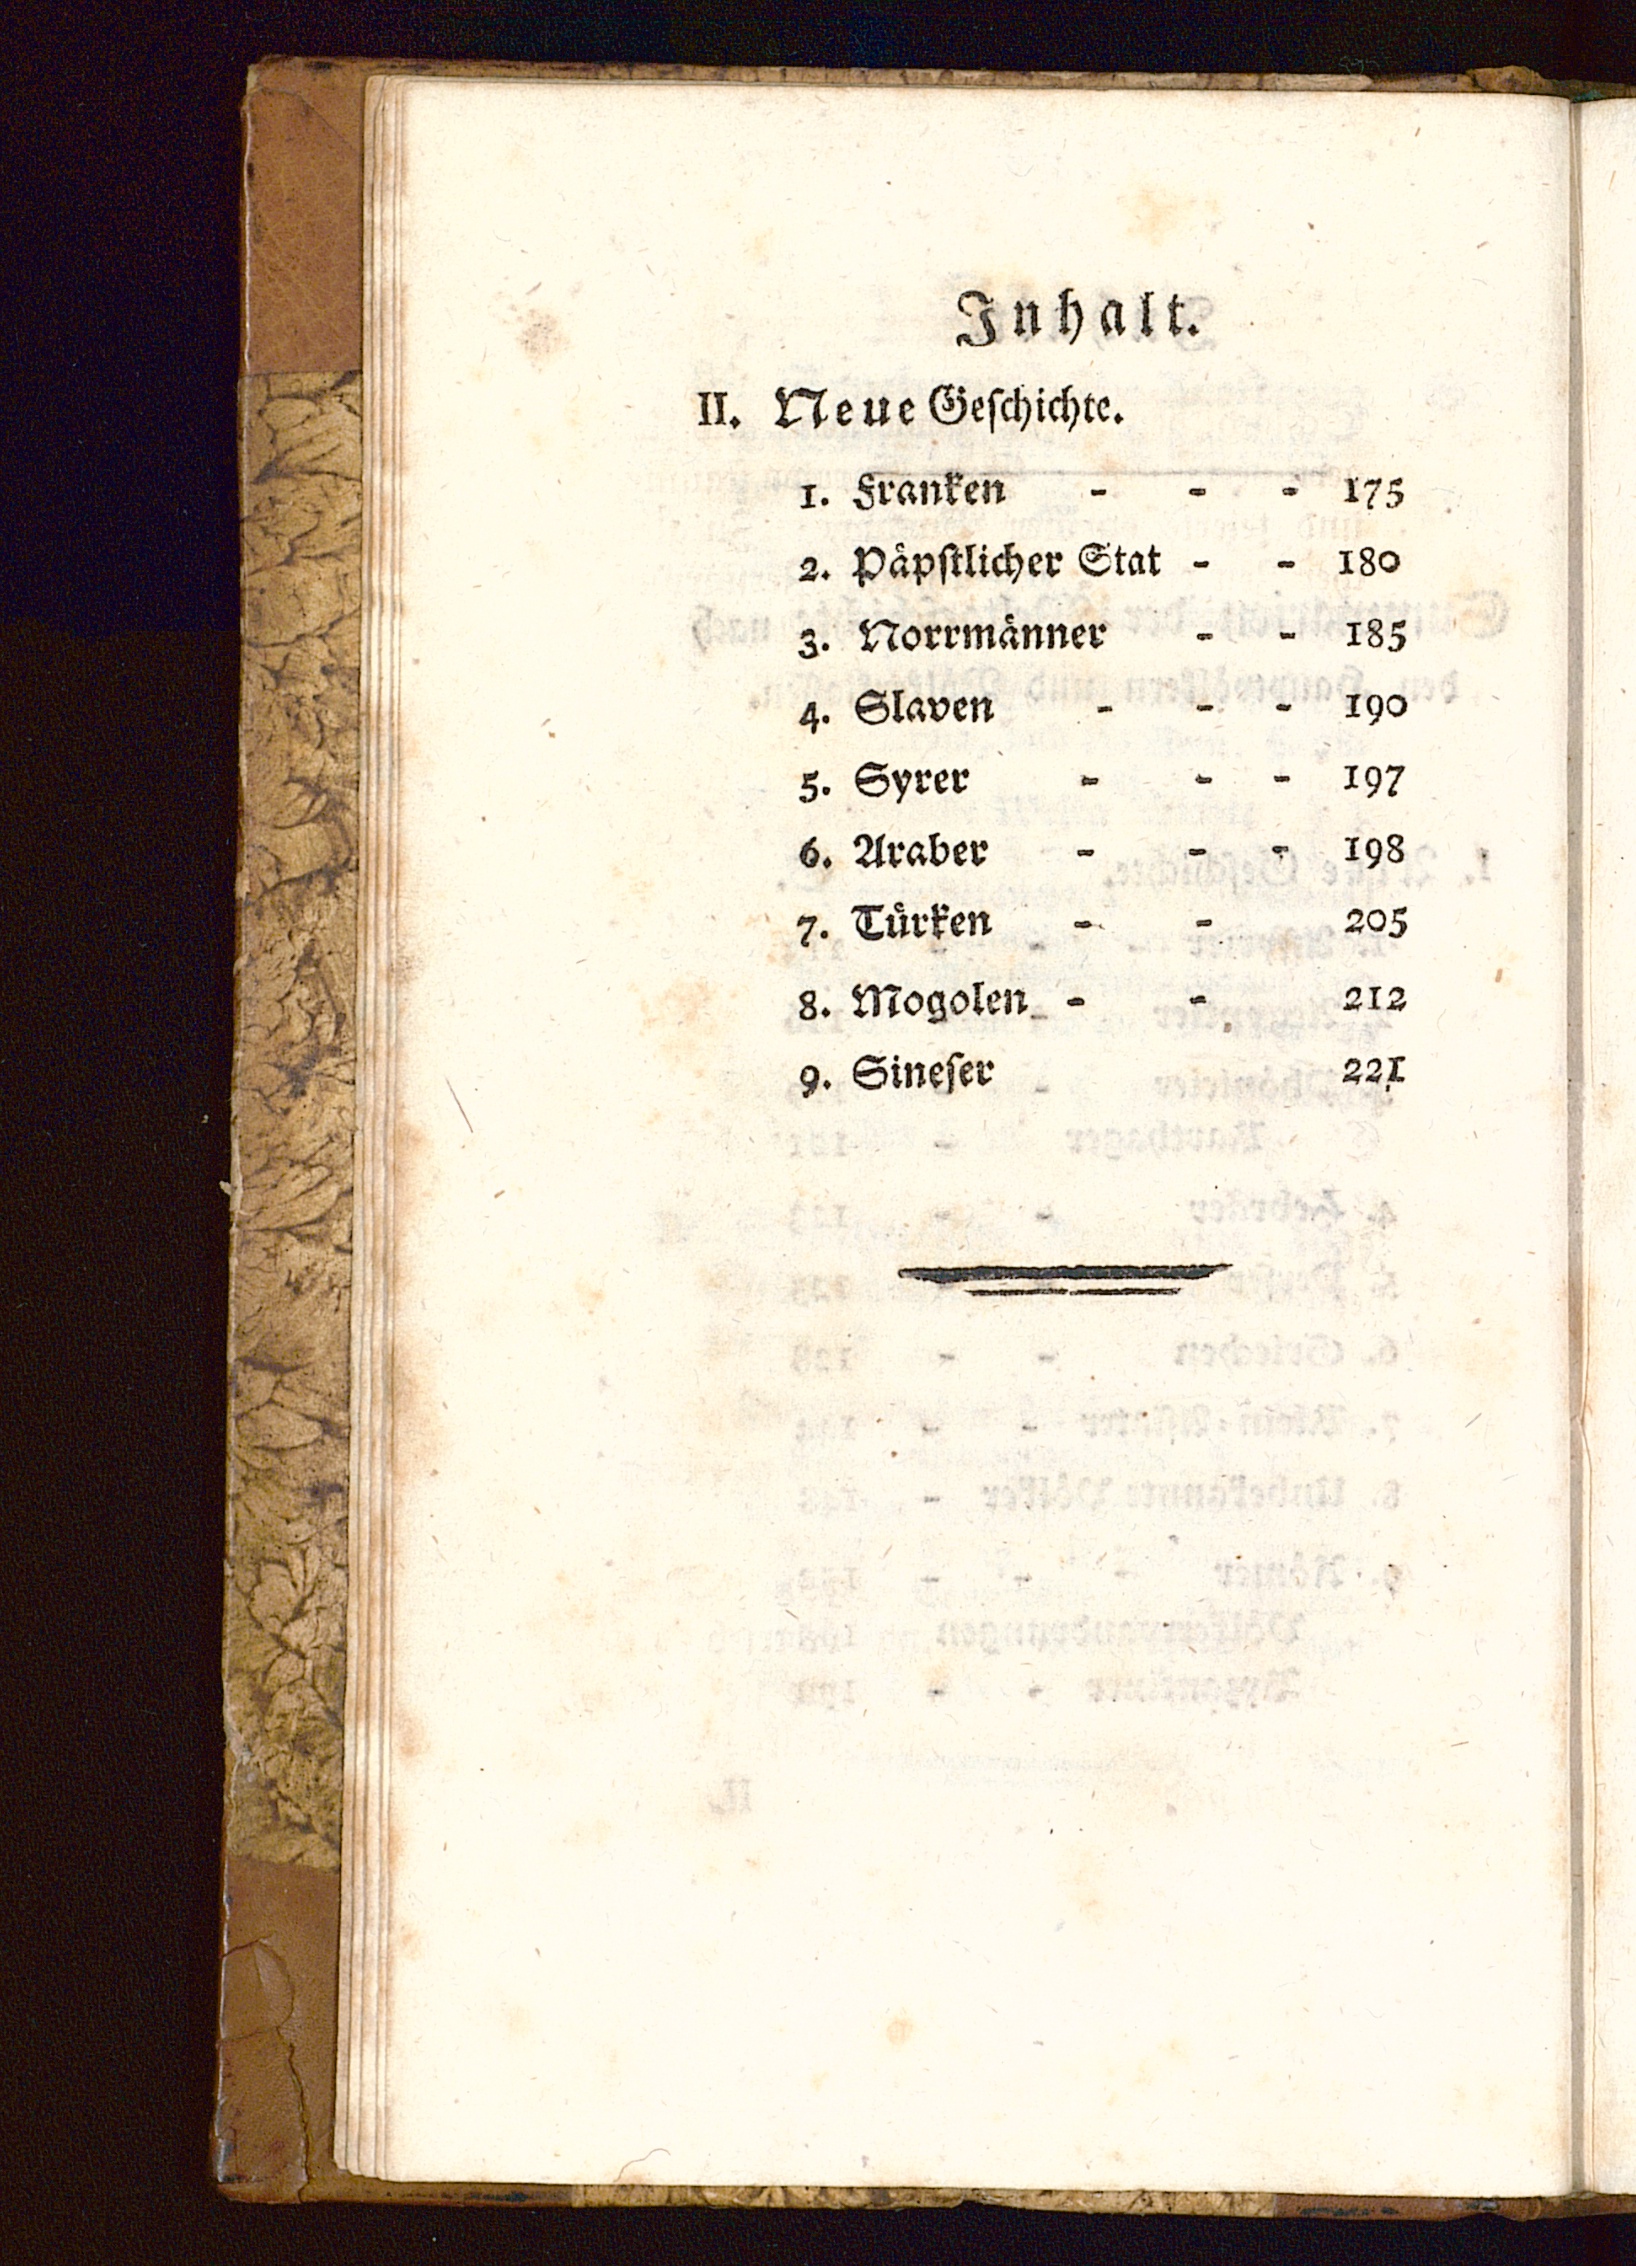 Inhalt.
II. Neue Geſchichte.
1. Franken - - - 175
2. Paͤpſtlicher Stat - - 180
3. Norrmaͤnner - - 185
4. Slaven - - - 190
5. Syrer - - - 197
6. Araber - - - 198
7. Tuͤrken - - 205
8. Mogolen - - 212
9. Sineſer 221